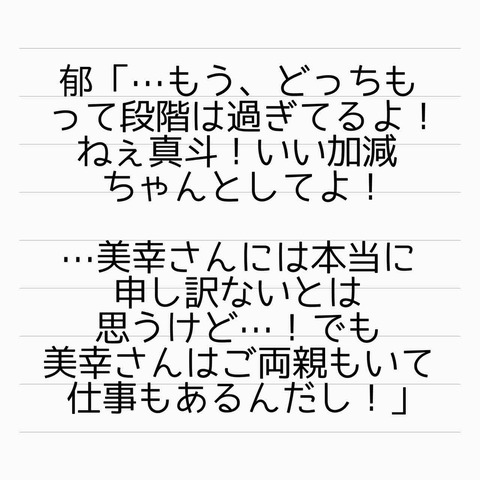 郁「…もう、どっちも
って段階は過ぎてるよ！
ねぇ真斗！いい加減
ちゃんとしてよ！
…美幸さんには本当に
申し訳ないとは
思うけど…！でも
美幸さんはご両親もいて
仕事もあるんだし！」